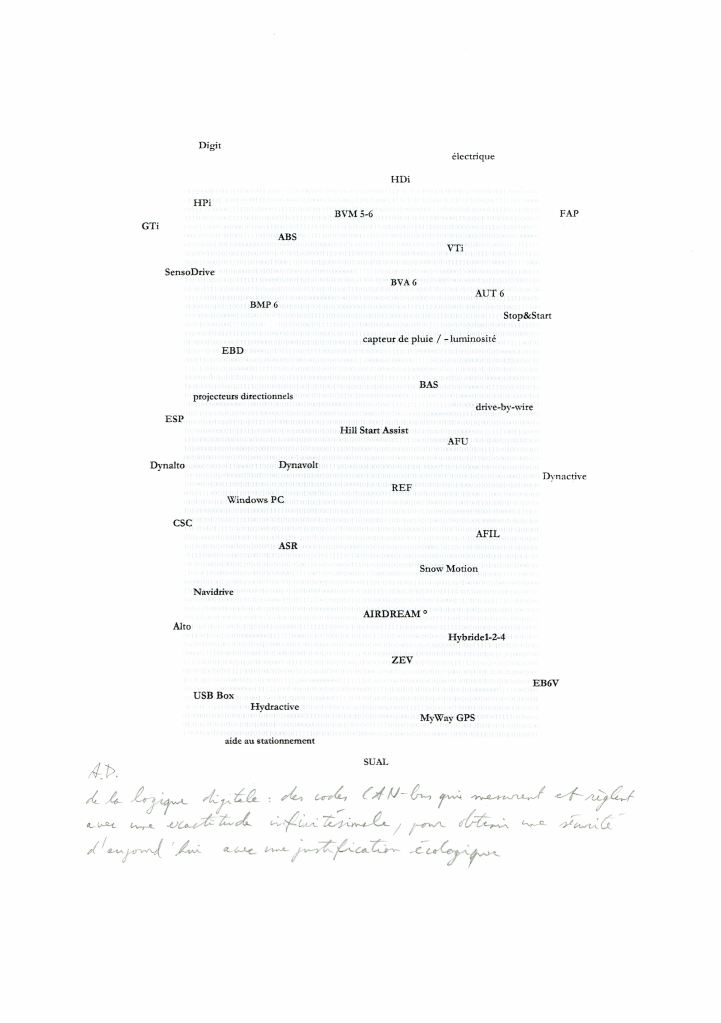 Digit
électrique
HDi
HPi
BVM 5-6
FAP
GTi
ABS
VTi
SensoDrive
BVA 6
AUT 6
BMP 6
Stop&Start
capteur de pluie / - luminosité
EBD
BAS
projecteurs directionnels
drive-by-wire
ESP
Hill Start Assist
AFU
Dynalto
Dynavolt
Dynactive
REF
Windows PC
CSC
AFIL
ASR
Snow Motion
Navidrive
AIRDREAM °
Alto
Hybride1-2-4
ZEV
EB6V
USB Box
Hydractive
MyWay GPS
aide au stationnement
SUAL
A.D.
de la logique digitale : des codes CAN-bus qui mesurent et règlent
avec une exactitude infinitésimale, pour obtenir une sécurité
d'aujourd'hui avec une justification écologique